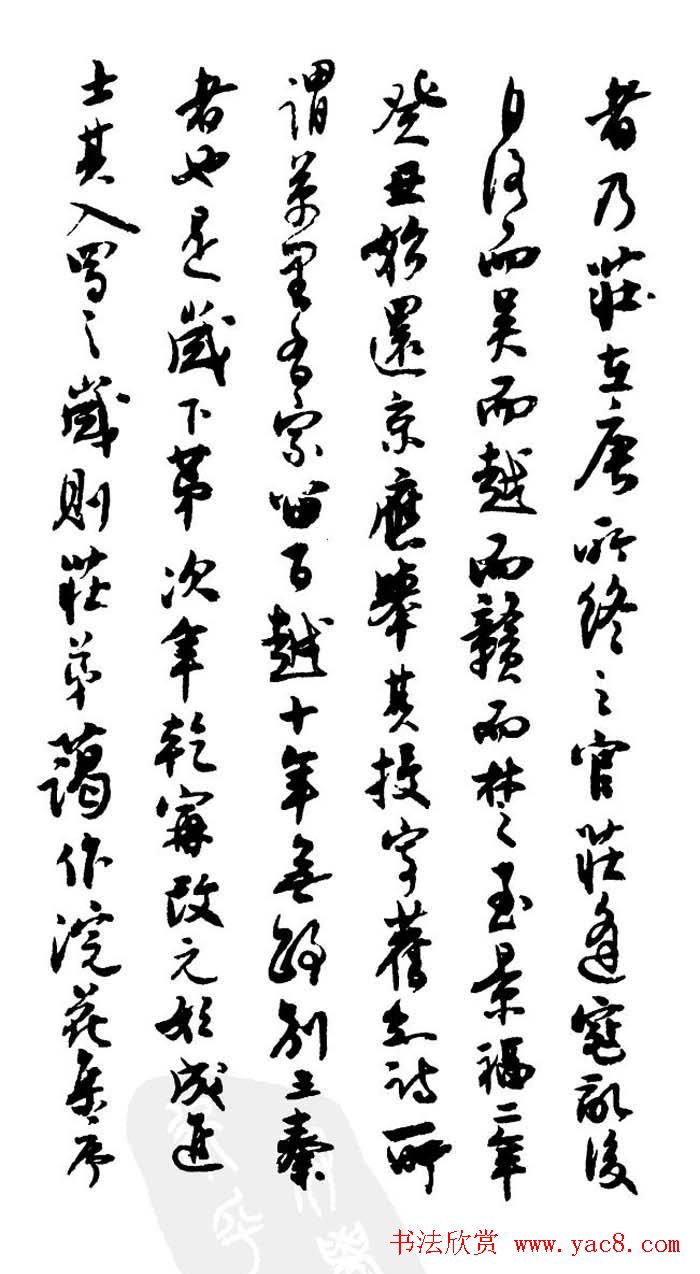 者乃莊在唐所終之官莊逢寇亂後
自洛而吳而越而贛而楚至景福二年
癸丑始還京應舉其投寄舊知詩所
謂萬里有家留百越十年無路到三秦
者也是歲下第次年乾寧改元始成進
士其入蜀之歲則莊弟藹作浣花集序
书法欣赏 www.yac8.com